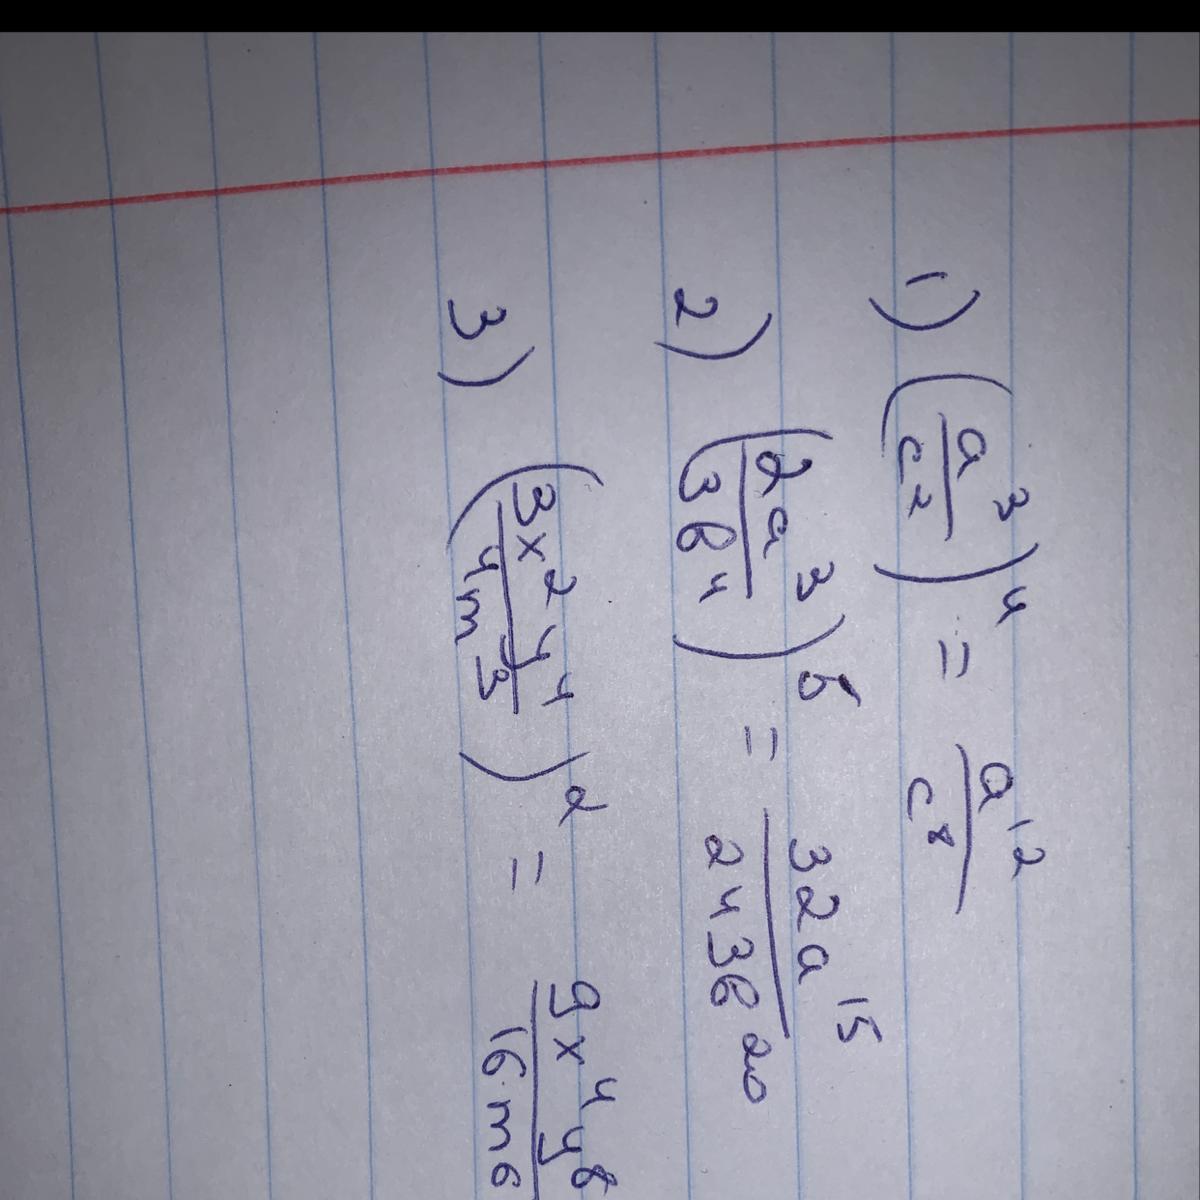 1) (a³/c²)⁴ = a¹²/c⁸
2) (2a³/3b⁴)⁵ = 32a¹⁵/243b²⁰
3) (3x²y⁴/4m³)² = 9x⁴y⁸/16m⁶